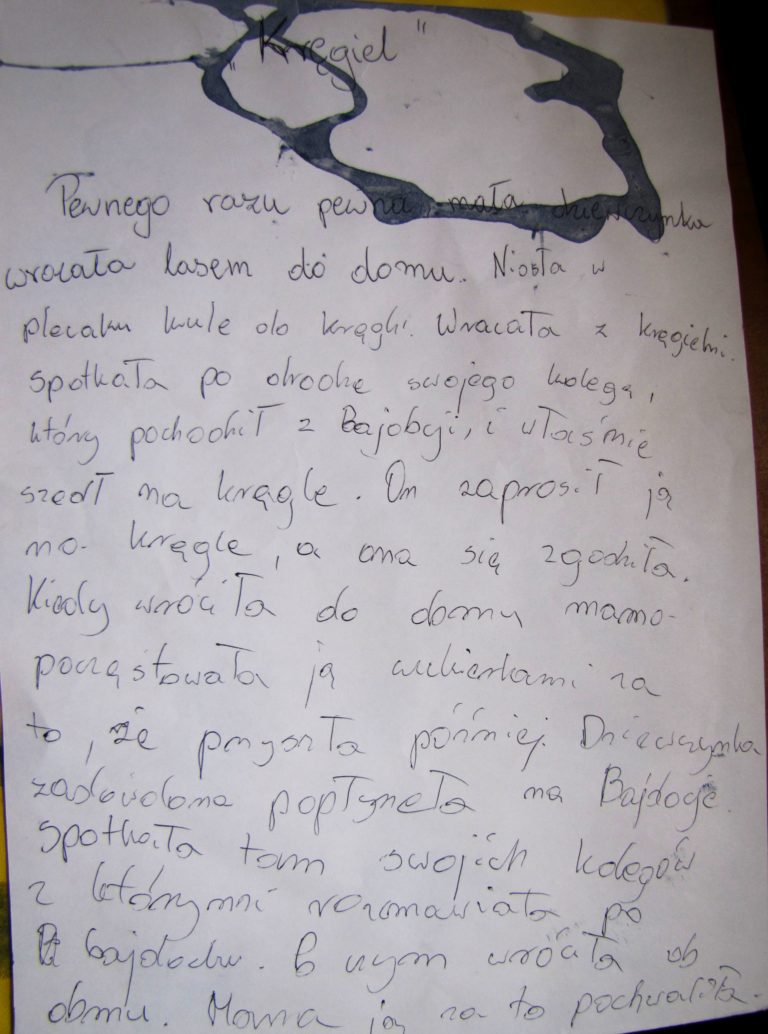 "Kręgiel"
Pewnego razu pewna mała dziewczynka
wracała lasem do domu. Niosła w
plecaku kule do kręgli. Wracała z kręgielni.
spotkała po drodze swojego kolegą,
który pochodził z Bajdocji, i właśnie
szedł na kręgle. On zaprosił ją
na kręgle, a ona się zgodziła.
Kiedy wróciła do domu mama
poczęstowała ją cukierkami za
to, że przyszła później. Dziewczynka
zadowolona popłyneła na Bajdocje.
Spotkała tam swojich kolegów
z którymni rozmawiała po
bajdocku. Po czym wróciła do
domu. Mama ją za to pochwaliła.